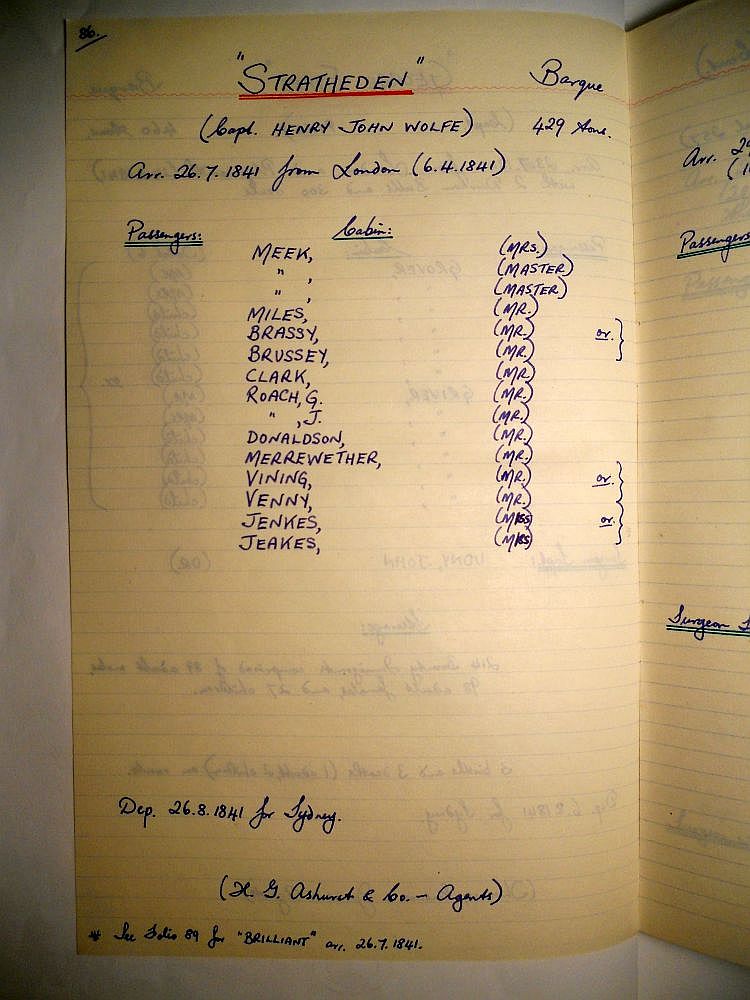 86.
"STRATHEDEN" Barque
(Capt. HENRY JOHN WOLFE) 429 tons.
Arr. 26.7.1841 from London (6.4.1841)
Passengers: Cabin:
MEEK, (MRS.)
" , (MASTER)
" , (MASTER)
MILES, (MR.)
BRASSY, (MR.) or. }
BRUSSEY, (MR.)
CLARK, (MR)
ROACH, G. (MR.)
" , J. (MR.)
DONALDSON, (MR.)
MERREWETHER, (MR.)
VINING, (MR.) or. }
VENNY, (MR.)
JENKES, (MISS) or. }
JEAKES, (MISS)
Dep. 26.8.1841 for Sydney.
(H. G. Ashurst & Co. - Agents)
* See Folio 89 for "BRILLIANT" arr. 26.7.1841.
Arr. 2
(1
Passengers
Surgeon S